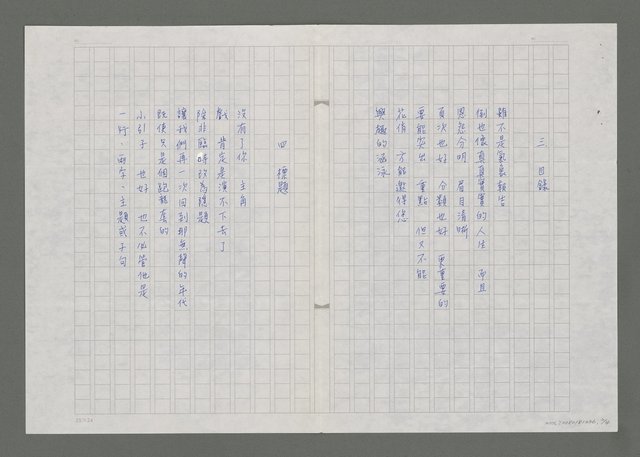 三 目錄
雖不是氣象報告
倒也像真真實實的人生 而且
恩怨分明 眉目清晰
頁次也好 分類也好 更重要的
要能突出 重點 但又不能
花俏 才能邀得您
興趣的
四 標題
沒有了你 主角
戲 肯定是演不下去了
除非臨時改為
讓我們再一次回到那無聲的年代
既使只是個跑龍套的
小引子 也好 也不必管他是
一行、兩字、主題或子句